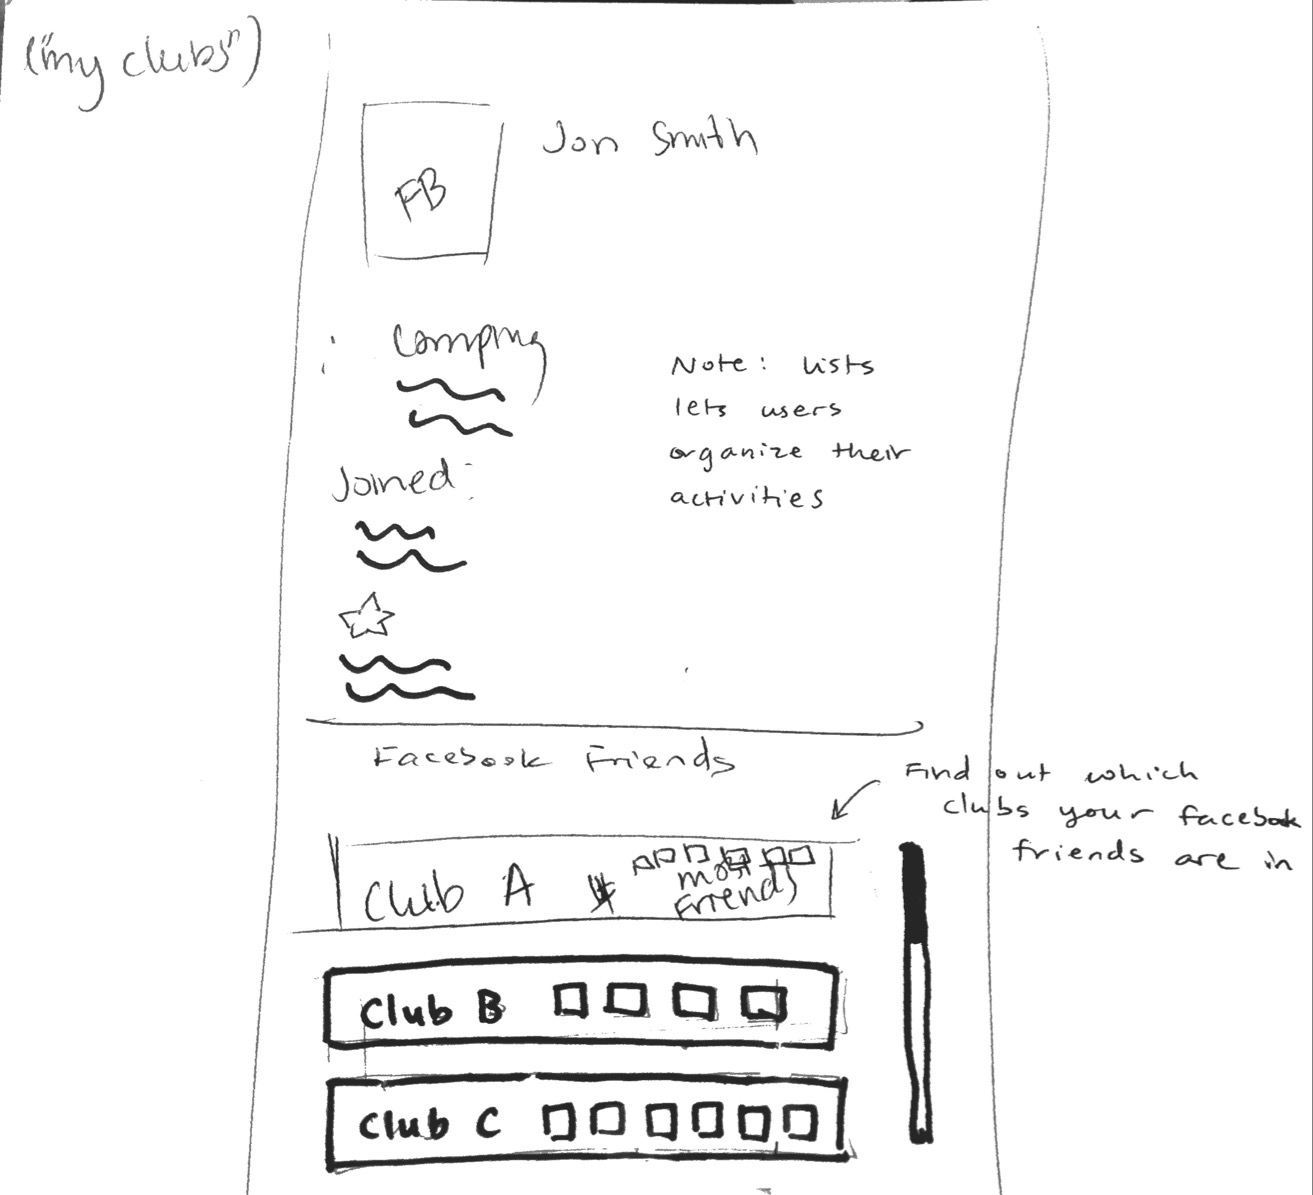 ("my clubs")
Jon Smith
FB
Camping
Note: lists
lets users
organize their
activities
Joined:
Facebook Friends
Find out which
clubs your facebook
friends are in
Club A
most
Friends
Club B
Club C